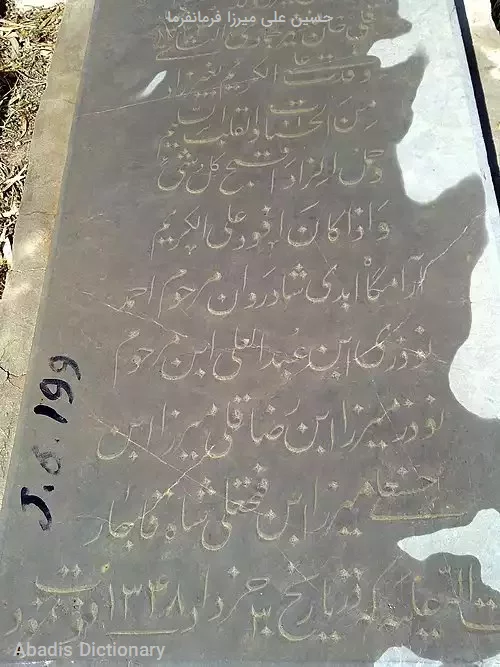 حسین علی میرزا فرمانفرما
وفدت علی الکریم بغیر زاد
من الحسنات والقلب السلیم
وحمل الزاد اقبح کل شئ
واذا کان الوفود علی الکریم
آرامگاه ابدی شادروان مرحوم احمد
نوذری ابن عبدالعلی ابن مرحوم
نوذر میرزا ابن رضا قلی میرزا ابن
میرزا ابن فتحعلی شاه قاجار
که در تاریخ ۳۰ خرداد ۱۳۴۸ فوت نمود
Abadis Dictionary